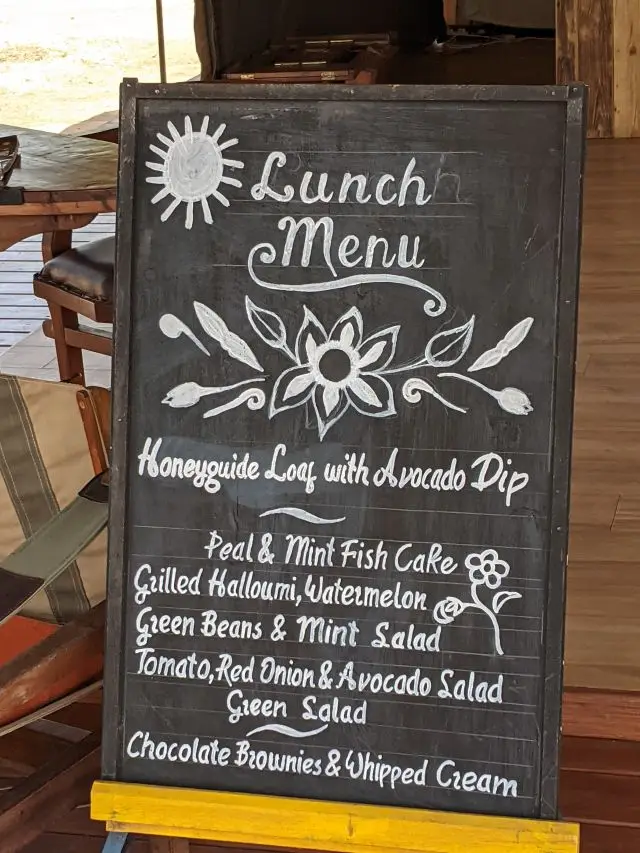 Lunch
Menu
Honeyguide Loaf with Avocado Dip
Peal & Mint Fish Cake
Grilled Halloumi, Watermelon
Green Beans & Mint Salad
Tomato, Red Onion & Avocado Salad
Green Salad
Chocolate Brownies & Whipped Cream